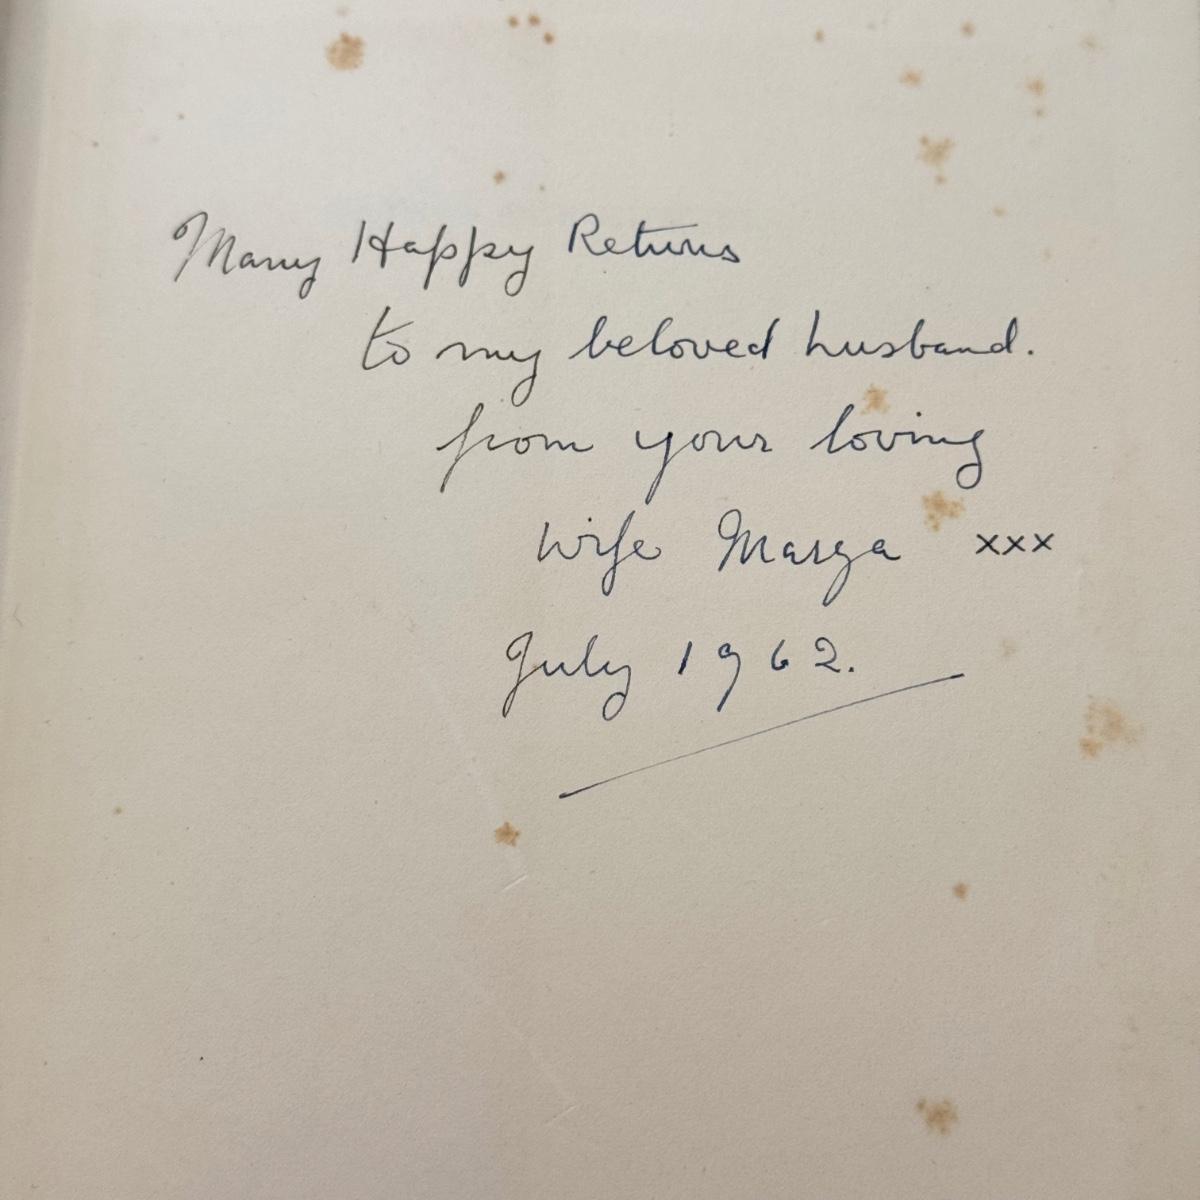 Many Happy Returns
to my beloved husband.
from your loving
wife Marga xxx
July 1962.